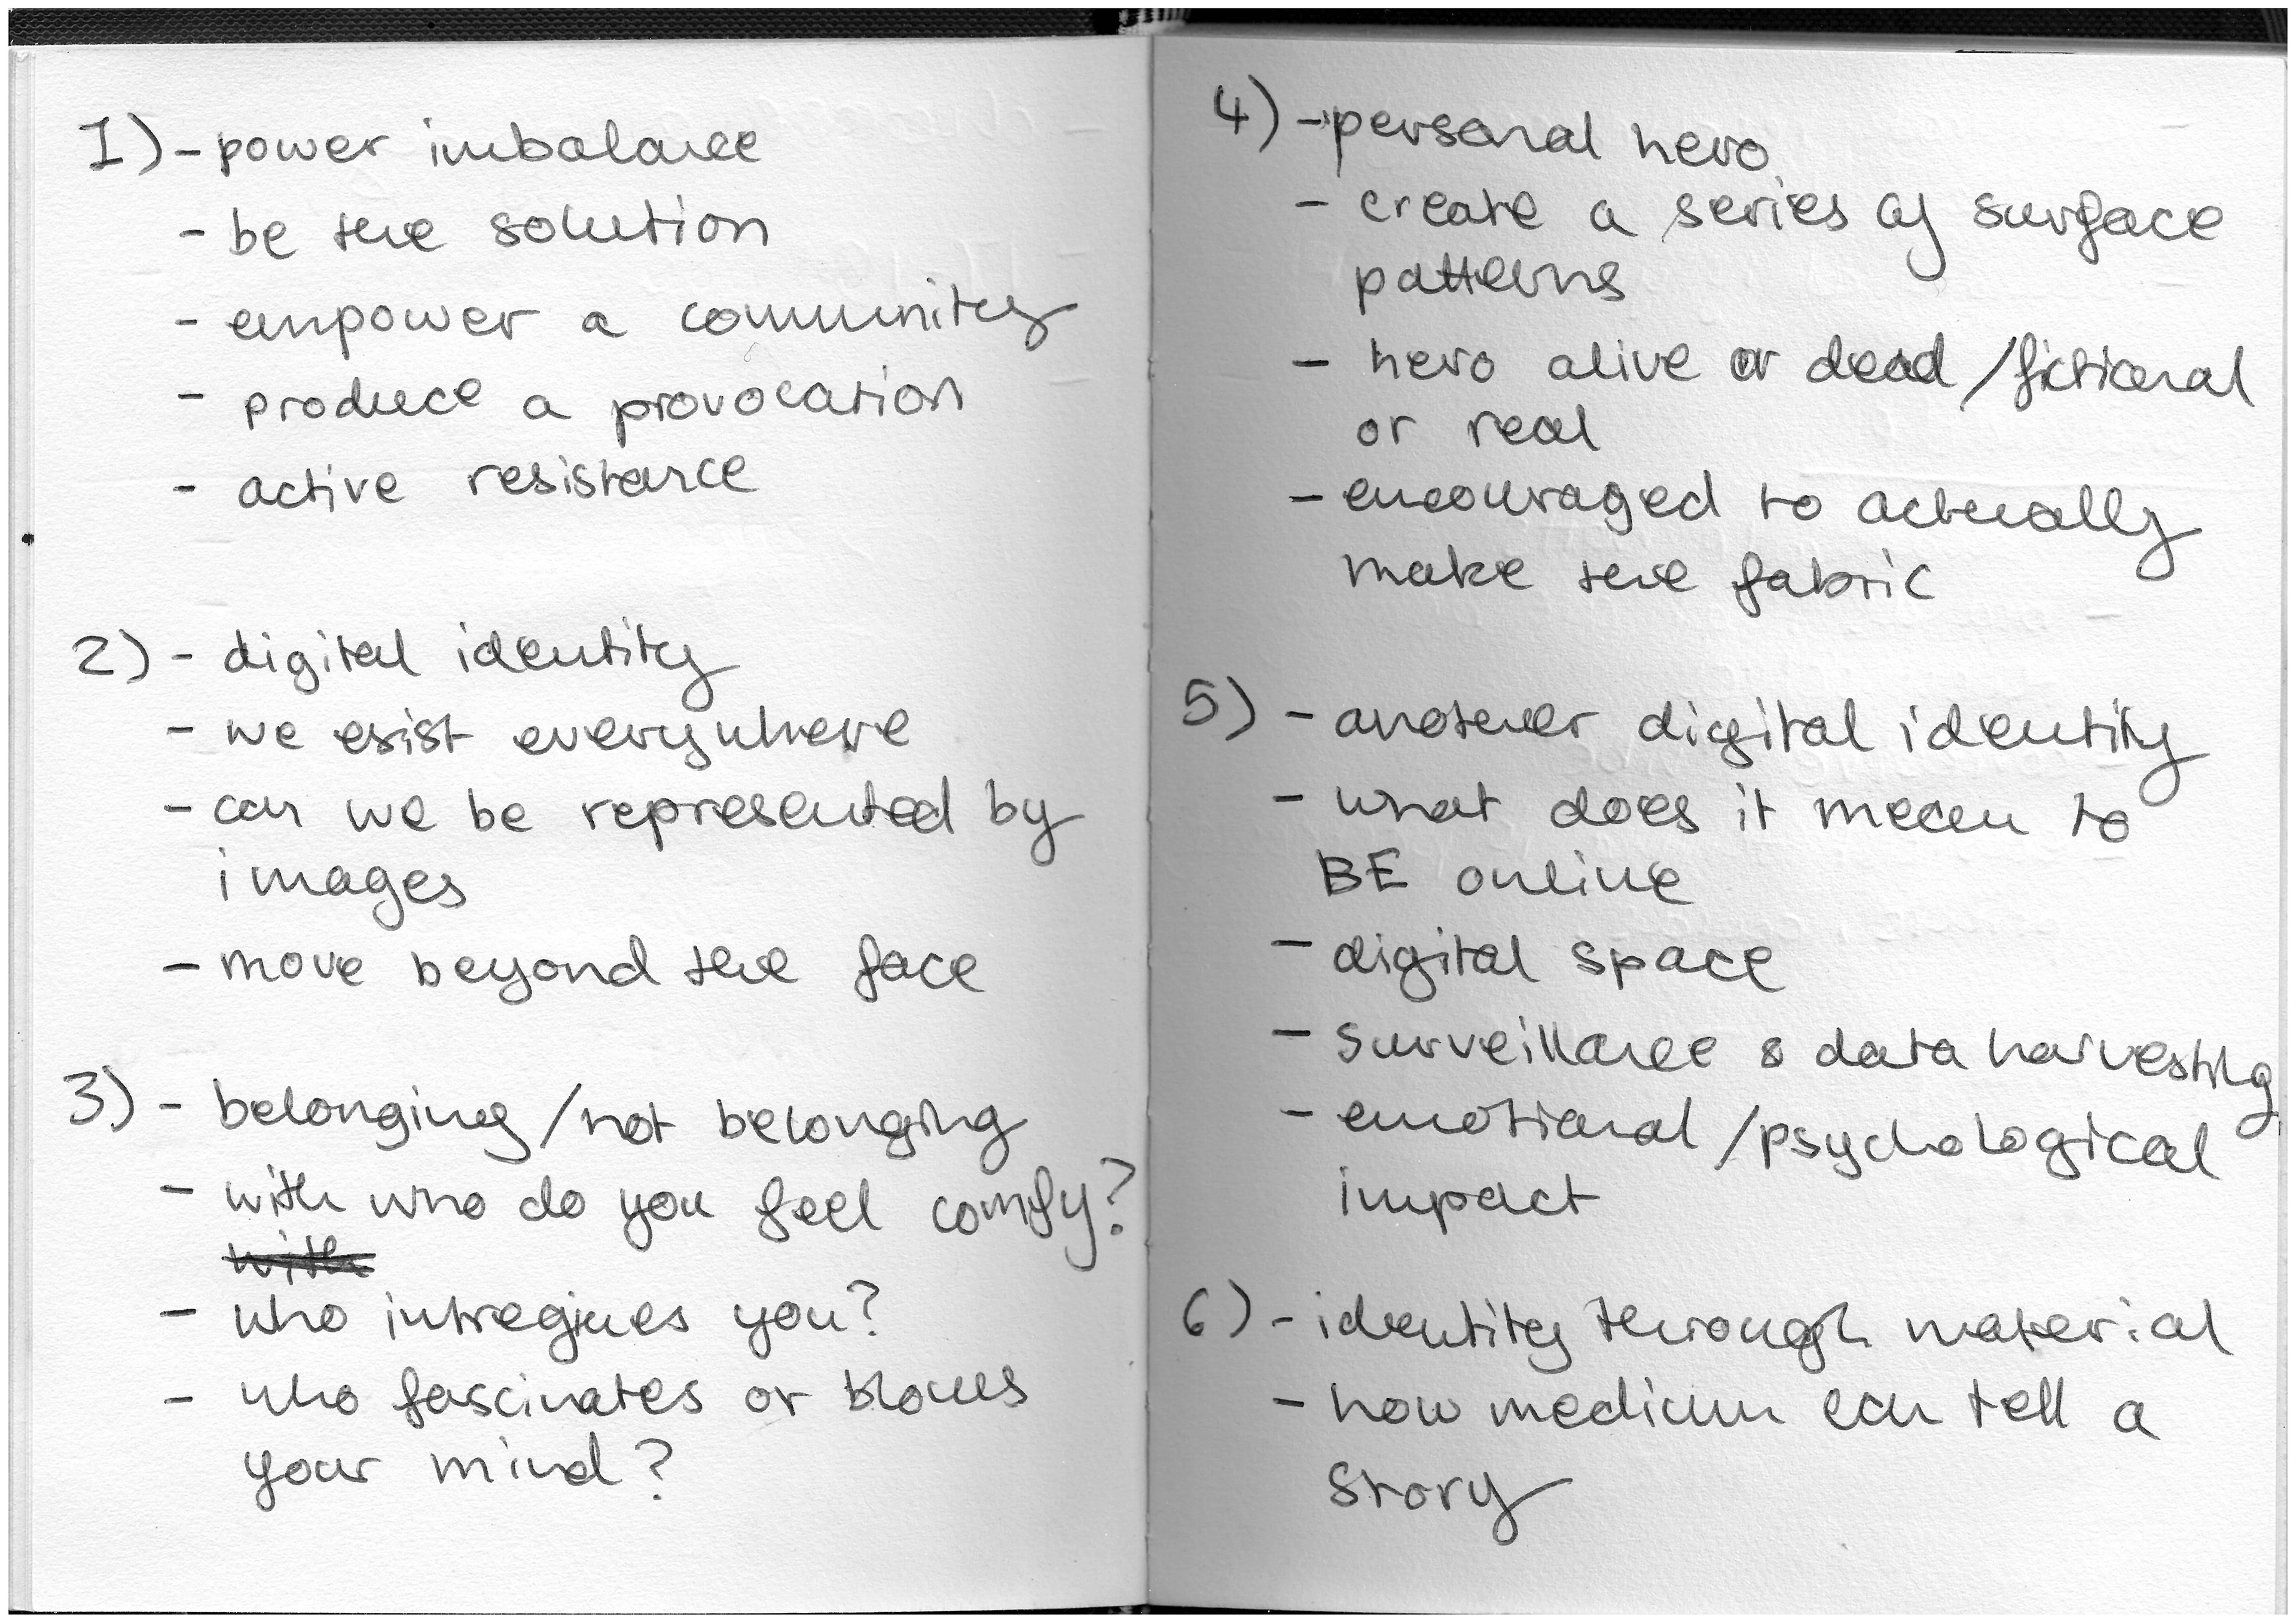 1) - power imbalance
- be the solution
- empower a community
- produce a provocation
- active resistance
2) - digital identity
- we exist everywhere
- can we be represented by
images
- move beyond the face
3) - belonging/not belonging
- with who do you feel comfy?
with
- who intregiues you?
- who fascinates or blows
your mind?
4) - personal hero
- create a series of surface
patterns
- hero alive or dead/fictional
or real
- encouraged to actually
make the fabric
5) - another digital identity
- what does it mean to
BE online
- digital space
- surveillance & data harvesting
- emotional/psychological
impact
6) - identity through material
- how medium can tell a
story